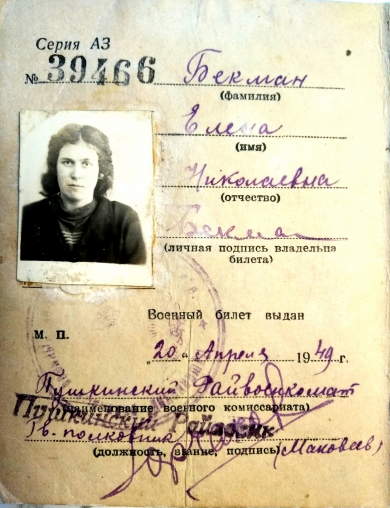 Серия АЗ
№ 39466 Бекман
(фамилия)
Елена
(имя)
Николаевна
(отчество)
Бекман
(личная подпись владельца
билета)
Военный билет выдан
М. П.
„20“ Апреля 1949 г.
Пушкинский Райвоенкомат
(наименование военного комиссариата)
Пушкинский
полковник
(должность, звание, подпись) (Маковеев)